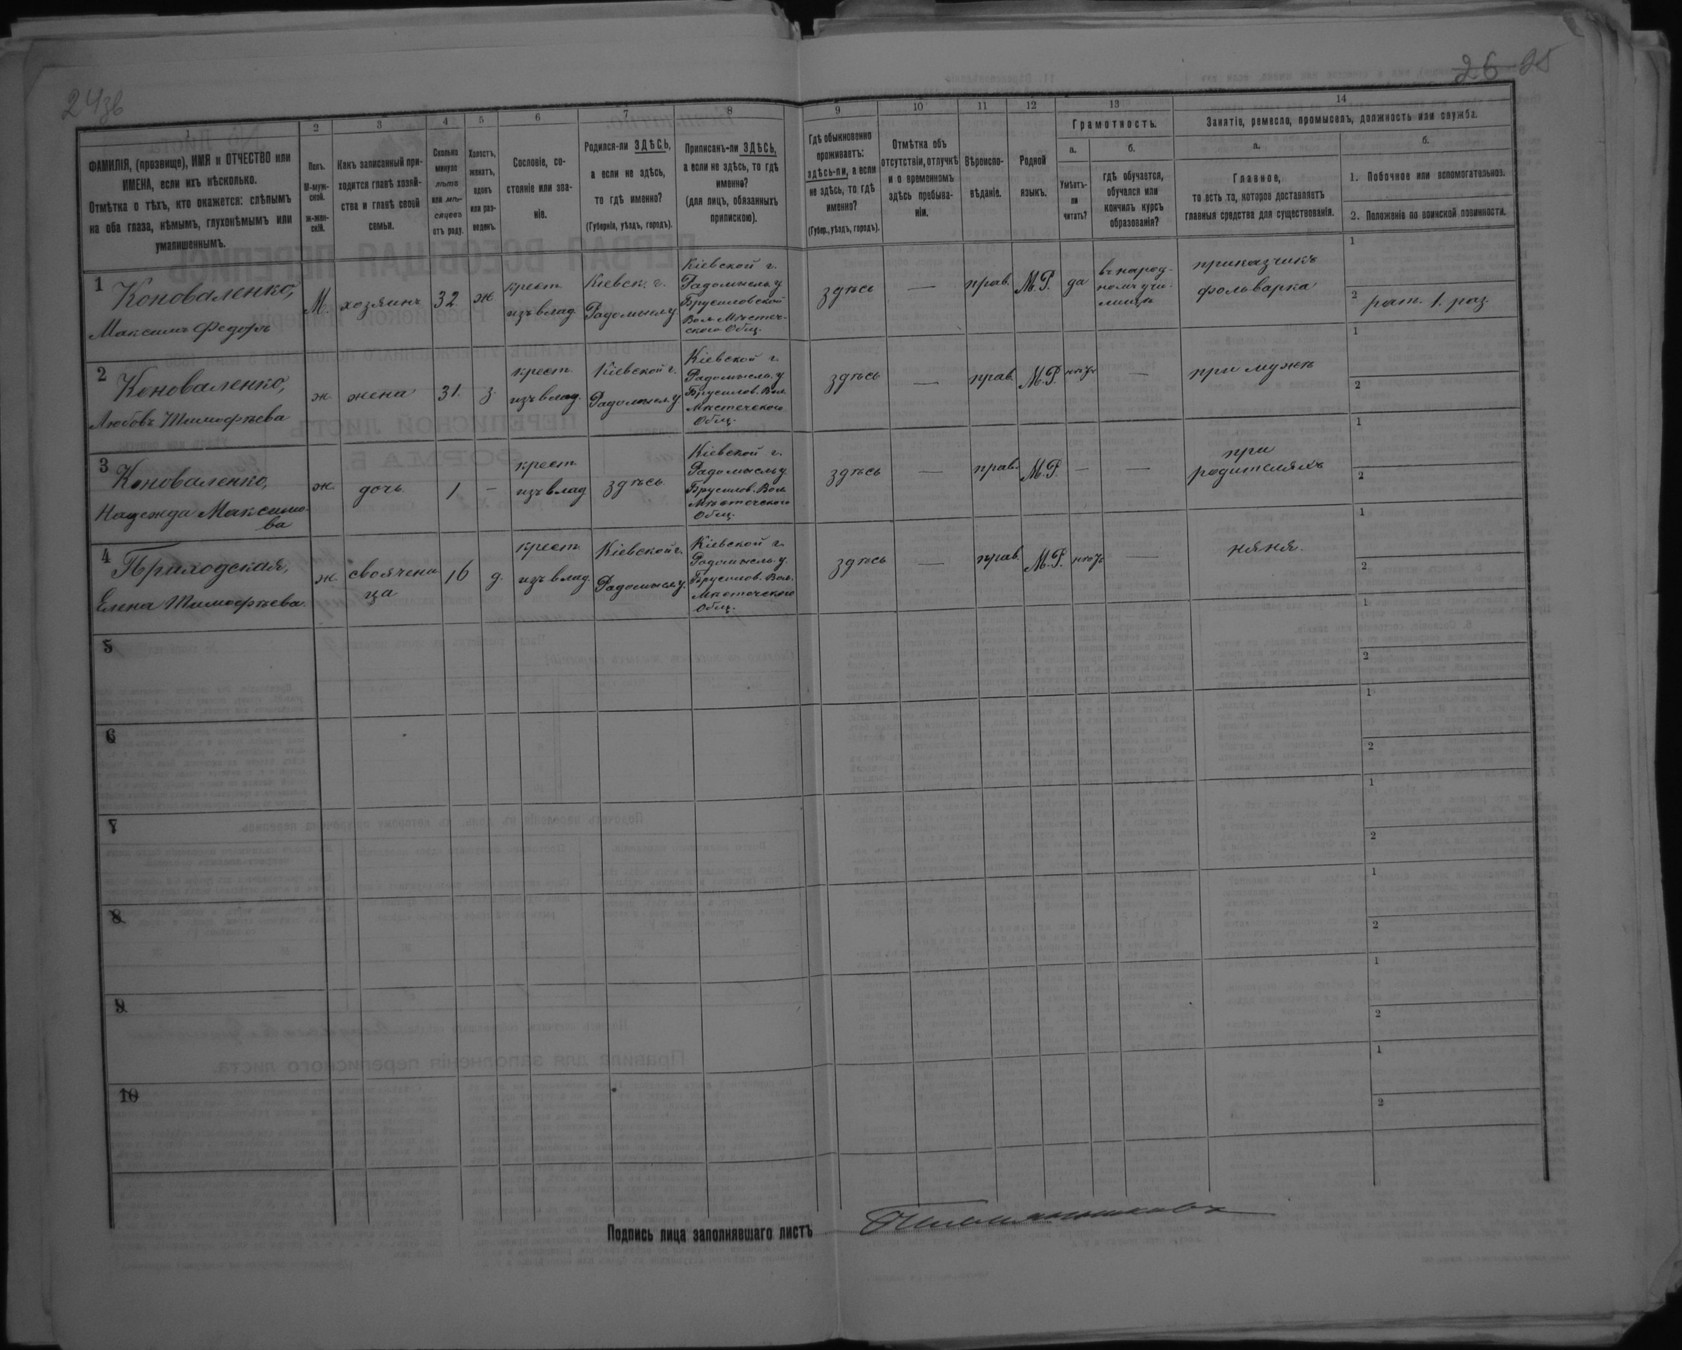 24зв
26 25
1 2 3 4 5 6 7 8 9 10 11 12 13 14
ФАМИЛІЯ, (прозвище), ИМЯ и ОТЧЕСТВО или
ИМЕНА, если ихъ нѣсколько.
Отмѣтка о тѣхъ, кто окажется: слѣпымъ
на оба глаза, нѣмымъ, глухонѣмымъ или
умалишеннымъ.
Полъ.
М-муж-
ской.
ж-жен-
скій.
Какъ записанный при-
ходится главѣ хозяй-
ства и главѣ своей
семьи.
Сколько
минуло
лѣтъ
или мѣ-
сяцевъ
отъ роду.
Холостъ,
женатъ,
вдовъ
или раз-
веденъ.
Сословіе, со-
стояніе или зва-
ніе.
Родился-ли ЗДѢСЬ,
а если не здѣсь,
то гдѣ именно?
(Губернія, уѣздъ, городъ).
Приписанъ-ли ЗДѢСЬ,
а если не здѣсь, то гдѣ
именно?
(для лицъ, обязанныхъ
припискою).
Гдѣ обыкновенно
проживаетъ:
здѣсь-ли, а если
не здѣсь, то гдѣ
именно?
(Губер., уѣздъ, городъ).
Отмѣтка объ
отсутствіи, отлучкѣ
и о временномъ
здѣсь пребыва-
ніи.
Вѣроиспо-
вѣданіе.
Родной
языкъ.
Грамотность.
а.
Умѣетъ-
ли
читать?
б.
гдѣ обучается,
обучался или
кончилъ курсъ
образованія?
Занятіе, ремесло, промыселъ, должность или служба.
а.
Главное,
то есть то, которое доставляетъ
главныя средства для существованія.
б.
1. Побочное или вспомогательное.
2. Положеніе по воинской повинности.
1
Коноваленко,
Максимъ Федоръ
М.
хозяинъ
32
ж
крест.
изъ влад.
Кіевск. г.
Радомысл. у
Кіевской г.
Радомысль. у
Брусиловской
Вол. Мѣстеч-
ского Общ.
здѣсь
—
прав.
М.Р.
да
въ народ-
номъ учи-
лищѣ
приказчикъ
фольварка
1
2 рат. 1. раз.
2
Коноваленко,
Любовь Тимофѣева
ж.
жена
31.
з.
крест.
изъ влад.
Кіевской г.
Радомысл. у
Кіевской г.
Радомысль. у
Брусилов. Вол.
Мѣстечского
Общ.
здѣсь
—
прав.
М.Р.
нѣтъ
—
при мужѣ
1
2
3
Коноваленко,
Надежда Максимо-
ва
ж.
дочь
1
—
крест.
изъ влад
здѣсь
Кіевской г.
Радомысль у
Брусилов. Вол.
Мѣстечского
Общ.
здѣсь
—
прав.
М.Р.
—
—
при
родителяхъ
1
2
4
Приходская,
Елена Тимофѣева.
ж.
своячени
ца
16
д.
крест.
изъ влад.
Кіевской г.
Радомысл. у.
Кіевской г.
Радомысль. у.
Брусилов. Вол.
Мѣстечского
Общ.
здѣсь
—
прав.
М.Р.
нѣтъ
—
няня.
1
2
5
1
2
6
1
2
7
1
2
8
1
2
9
1
2
10
1
2
Подпись лица заполнявшаго листъ